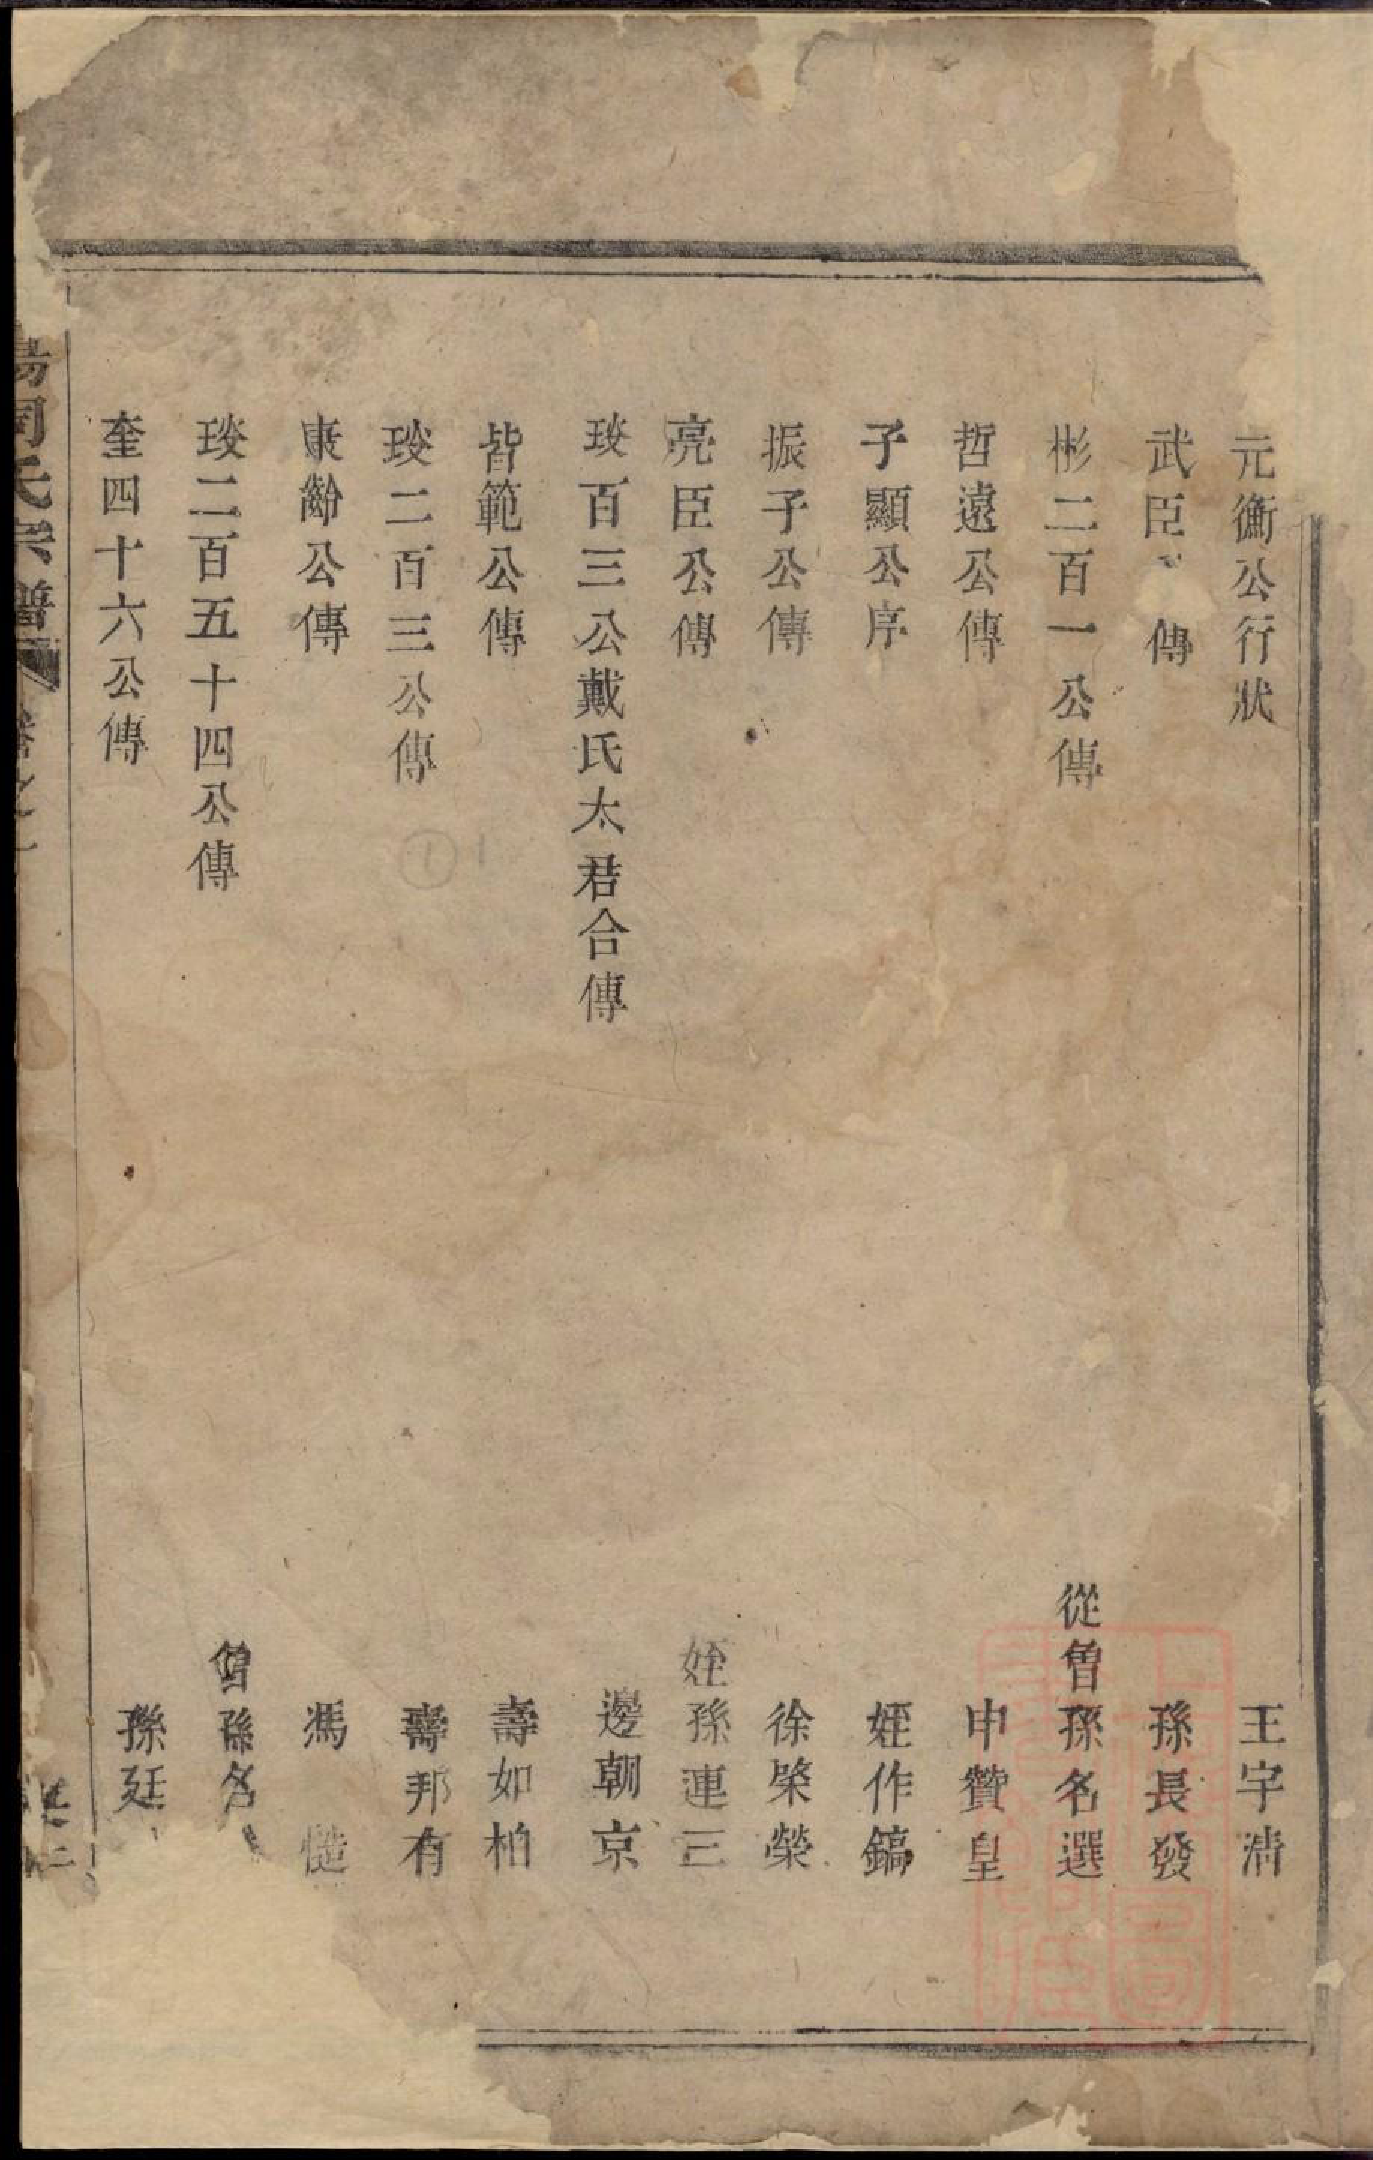 元衡公行狀 王宇淸
武臣 傳 孫長發
彬二百一公傳 從曾孫名選
哲遠公傳 申贊皇
子顯公序 姪作鎬
振子公傳 徐榮榮
亮臣公傳 姪孫連三
琰百三公戴氏太君合傳 邊朝京
皆範公傳 壽如柏
琰二百三公傳 壽邦有
康齡公傳 馮
琰二百五十四公傳 曾孫名
奎四十六公傳 孫廷
周氏宗譜 卷之一